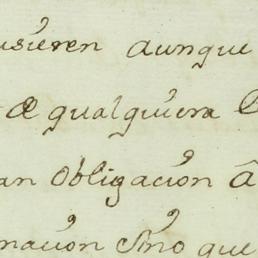 usieren aunque
de qualquiera
an Obligacion â
nacion Sino que